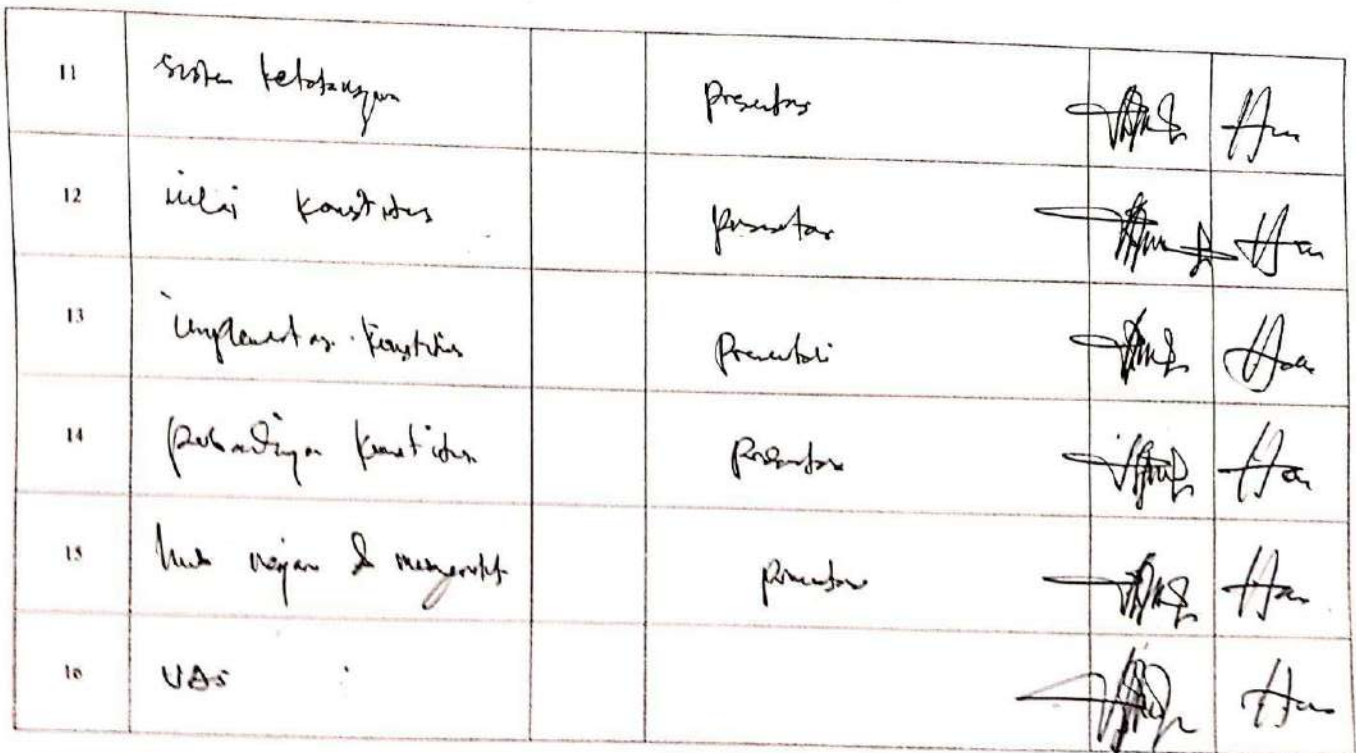 11 sistem ketatanegaraan presentasi
12 nilai konstitusi presentasi
13 implementasi konstitusi presentasi
14 perbandingan konstitusi presentasi
15 hub negara & presentasi
16 UAS